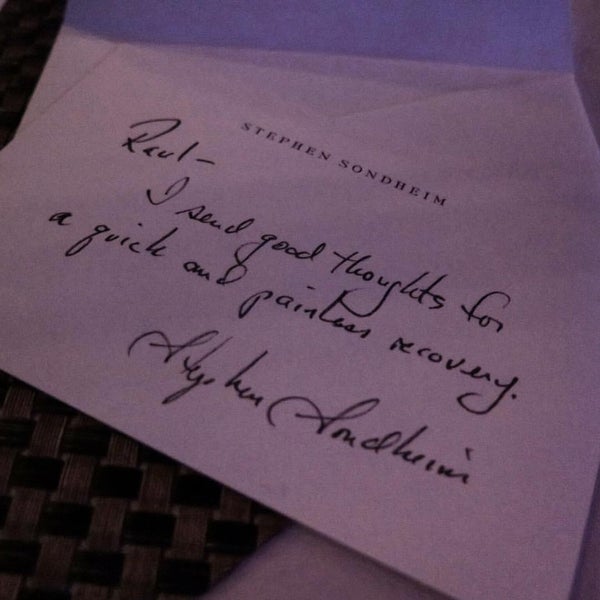 STEPHEN SONDHEIM
Raul-
I send good thoughts for
a quick and painless recovery.
Stephen Sondheim